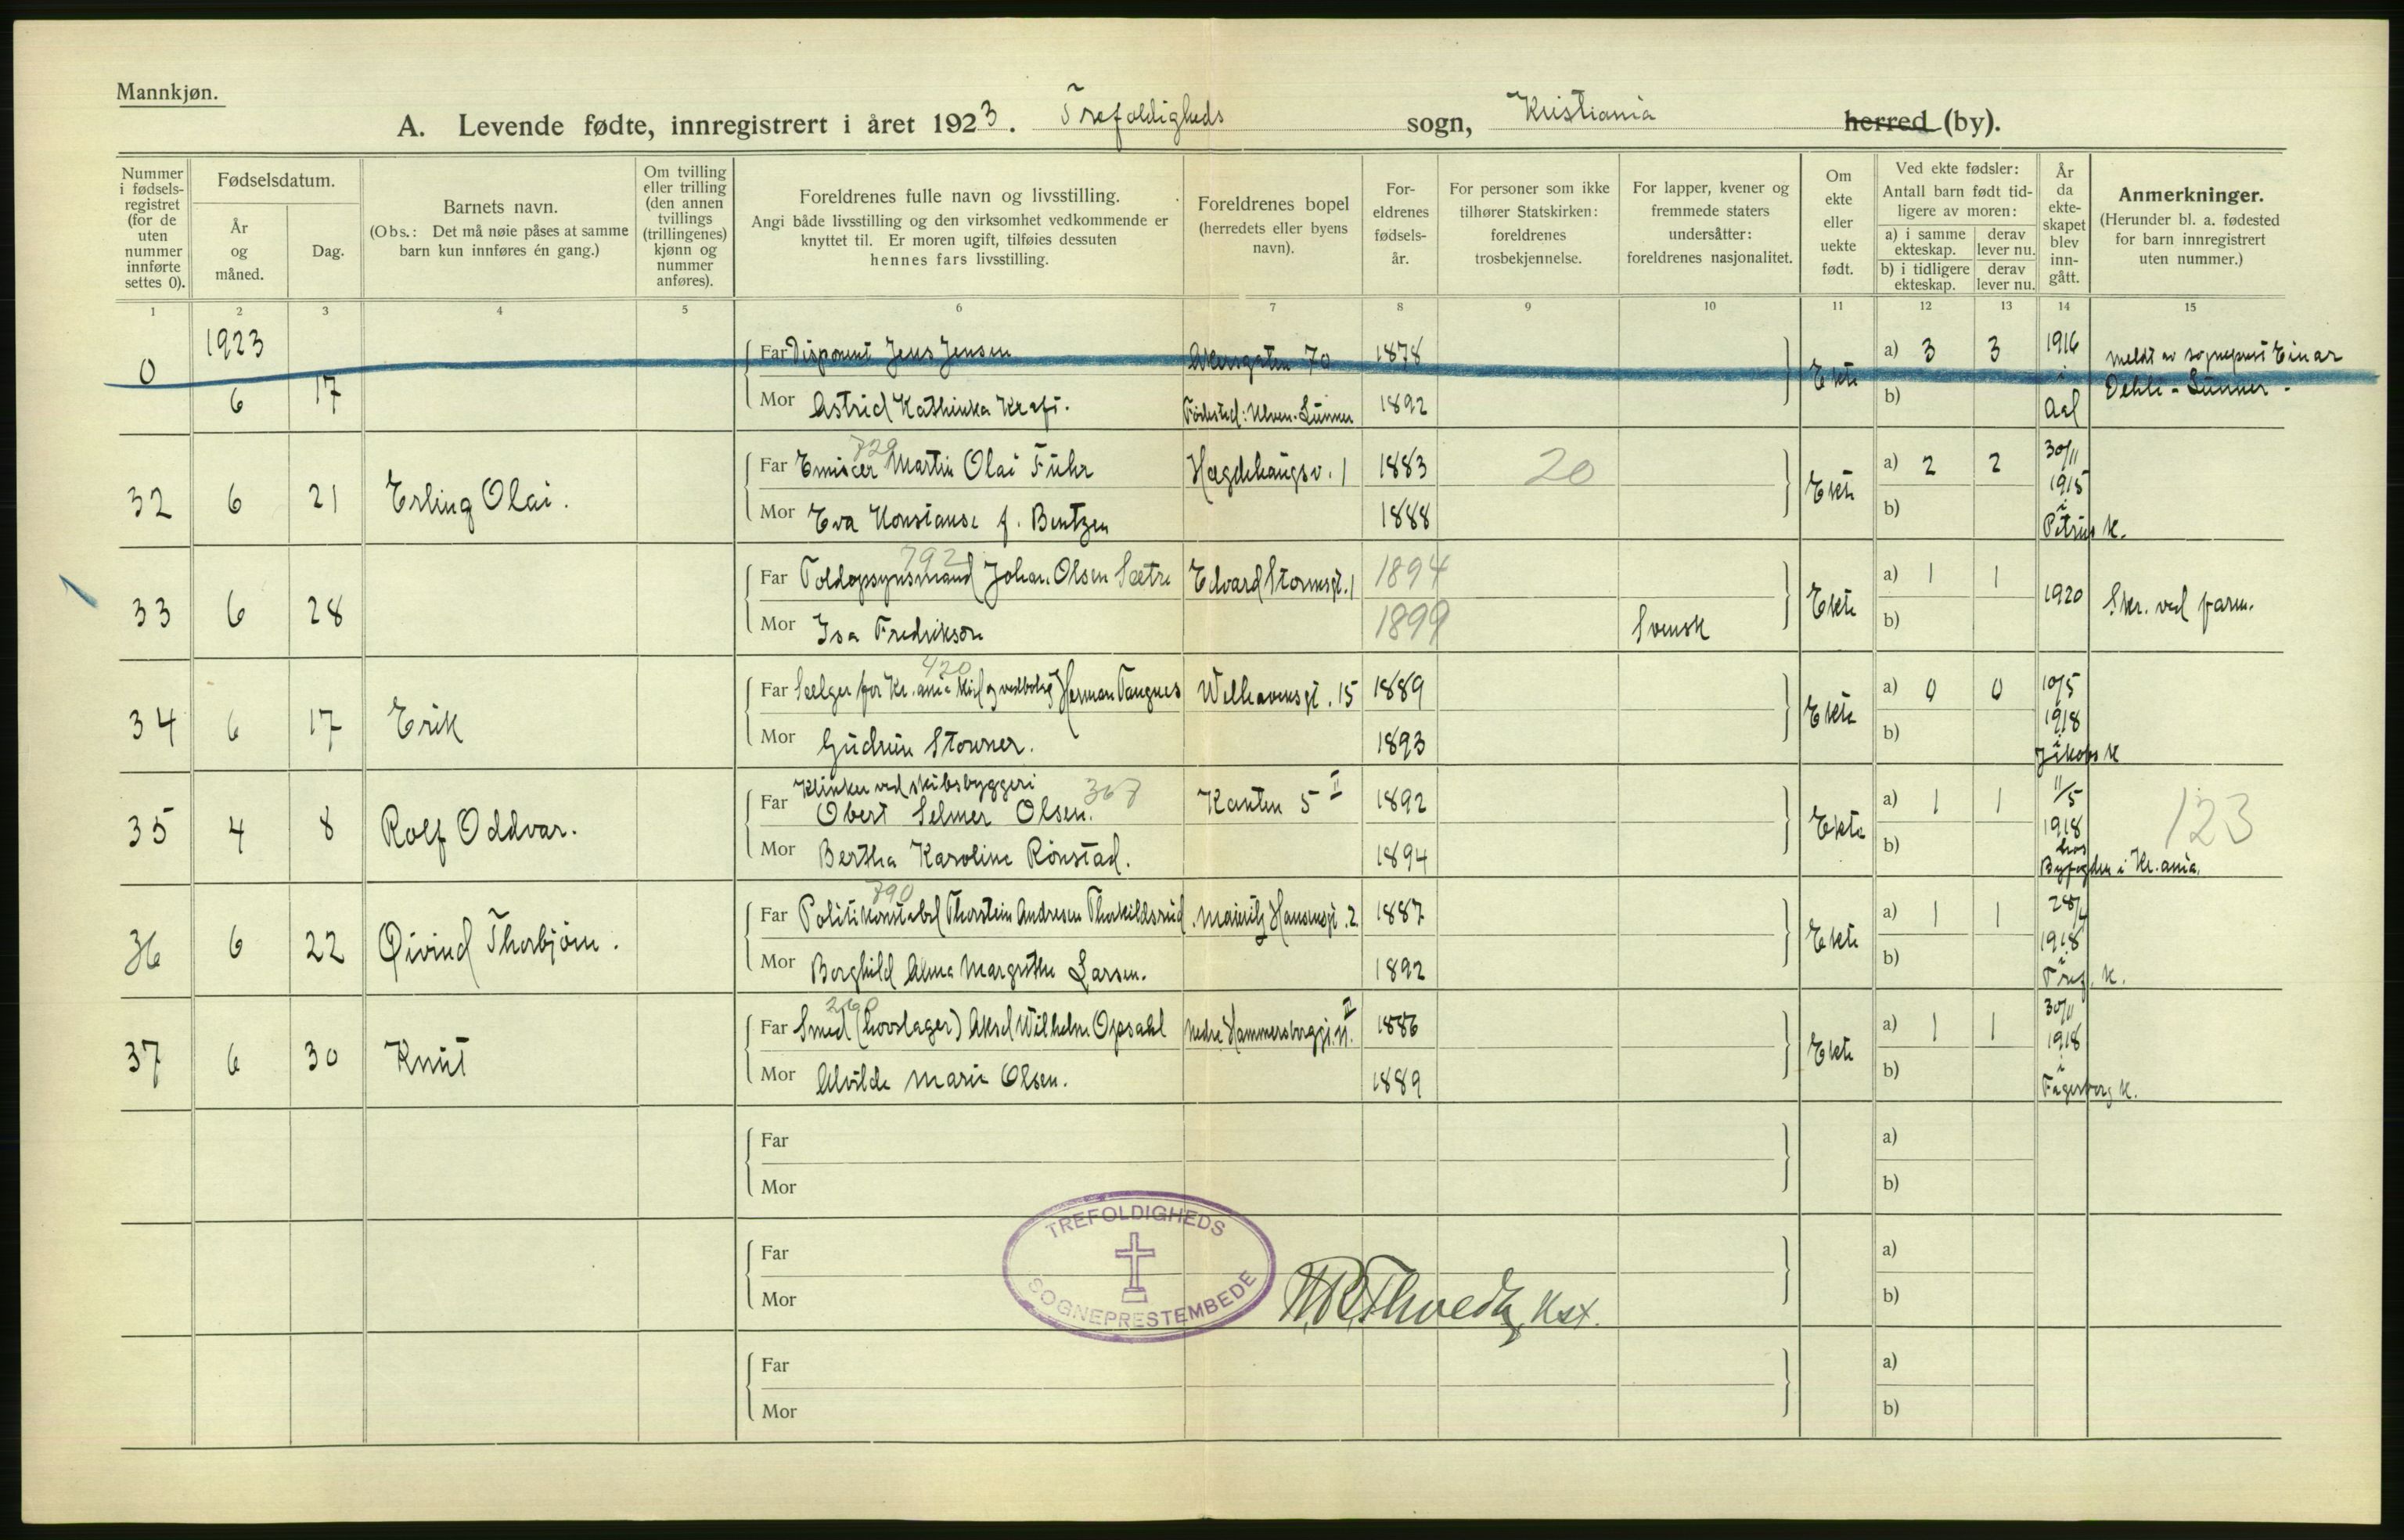 Mannkjøn.
A. Levende fødte, innregistrert i året 1923. Trefoldigheds sogn, Kristiania herred (by).
Nummer i fødsels-registret (for de uten nummer innførte settes 0).
Fødselsdatum.
År og måned.
Dag.
Barnets navn.
(Obs.: Det må nøie påses at samme barn kun innføres én gang.)
Om tvilling eller trilling (den annen tvillings (trillingenes) kjønn og nummer anføres).
Foreldrenes fulle navn og livsstilling.
Angi både livsstilling og den virksomhet vedkommende er knyttet til. Er moren ugift, tilføies dessuten hennes fars livsstilling.
Foreldrenes bopel (herredets eller byens navn).
For-eldrenes fødsels-år.
For personer som ikke tilhører Statskirken: foreldrenes trosbekjennelse.
For lapper, kvener og fremmede staters undersåtter: foreldrenes nasjonalitet.
Om ekte eller uekte født.
Ved ekte fødsler:
Antall barn født tid-ligere av moren:
a) i samme ekteskap. derav lever nu.
b) i tidligere ekteskap. derav lever nu.
År da ekte-skapet blev inn-gått.
Anmerkninger.
(Herunder bl. a. fødested for barn innregistrert uten nummer.)
1 2 3 4 5 6 7 8 9 10 11 12 13 14 15
0 1923 6 17
Far Disponent Jens Jensen Akersgaten 70 1878
Mor Astrid Kathinka Kraft. Fødested: Ulven. Lunner 1892
Ekte a) 3 3 b) 1916 i Aal
Meldt av sogneprest Einar Dehli - Lunner.
32 6 21 Erling Olai.
729
Far Emisær Martin Olai Fuhr Hægdehaugsv. 1 1883 20
Mor Eva Konstanse f. Bentzen 1888
Ekte a) 2 2 b) 30/11 1915 i Petrus k.
1
33 6 28
792
Far Toldopsynsmand Johan Olsen Sætre Edvard Stormsgt. 1 1894
Mor Isa Fredrikson 1899 Svensk
Ekte a) 1 1 b) 1920 Skr. ved farm.
34 6 17 Erik
420
Far Sælger for Kr.ania kul og vedbolag Herman Tangnes Welhavensgt. 15 1889
Mor Gudrun Storner. 1893
Ekte a) 0 0 b) 10/5 1918 i Jakobs k
35 4 8 Rolf Oddvar.
Klinker ved skibsbyggeri 367
Far Obert Selmer Olsen. Kanten 5 II 1892
Mor Bertha Karoline Rønstad. 1894
Ekte a) 1 1 b) 11/5 1918 hos Byfogden i Kr.ania. 123
36 6 22 Øivind Thorbjørn.
790
Far Politikonstabel Thorstein Andresen Thorkildsrud Mauritz Hansensgt. 2. 1887
Mor Borghild Alma Margrethe Larsen. 1892
Ekte a) 1 1 b) 28/4 1918 i Tref. k.
37 6 30 Knut
260
Far Smed (hovslager) Aksel Wilhelm Opsahl Nedre Hammersborggt. 11. II 1886
Mor Alvilde Marie Olsen. 1889
Ekte a) 1 1 b) 30/11 1918 i Fagerborg k.
Far a)
Mor b)
Far a)
Mor b)
TREFOLDIGHEDS
SOGNEPRESTEMBEDE
Kst.
Far a)
Mor b)